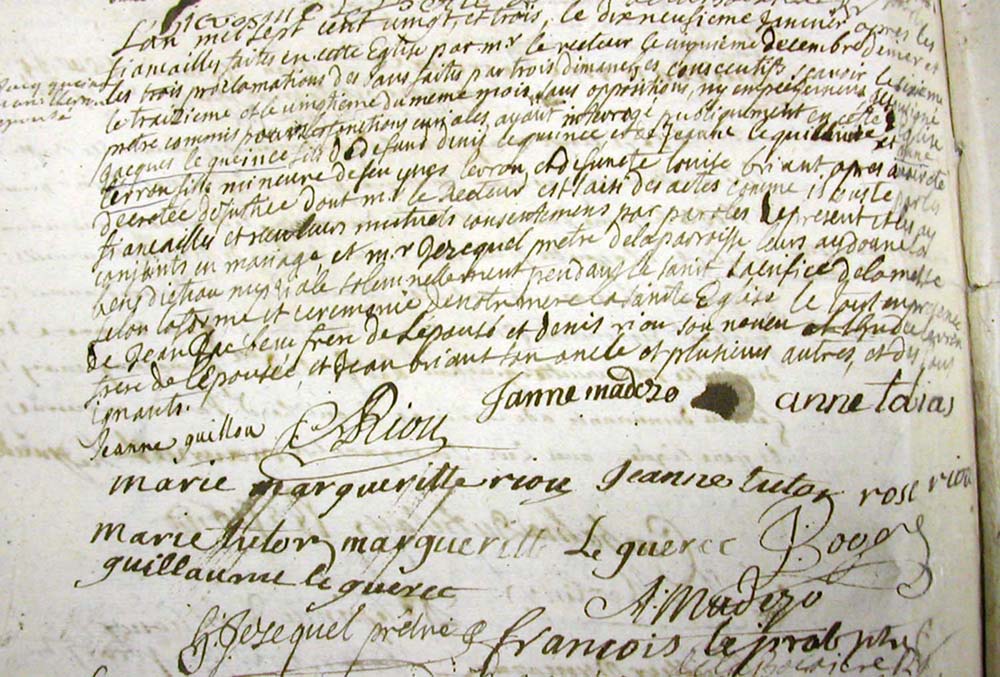 L'an mil sept cent vingt et trois, le dix neufieme Janvier apres les
fiancailles faites en cette Eglise par mr le recteur le cinquieme decembre dernier et
les trois proclamations des bans faites par trois dimanches consecutifs scavoir le sixieme
le traizieme et le vingtieme du meme mois sans oppositions, ny empechement
pretre commis pour les fonctions curiales, ayant interrogé publiquement en cette Eglise
Jacques le guince fils de defund denis le guince et de Jeanne le et anne
terron fille mineure de feu yves terron, et defuncte louise briant, apres
decretée de justice dont mr le Recteur est saisi des actes comme il
fiancailles et receu leurs mutuels consentemens par paroles de present et les ay
conjoints en mariage et mr Jezequel pretre de la parroisse leurs ay donné la
benediction nuptiale solemnellement pendant le saint sacrifice de la messe
selon la forme et ceremonie de notre mere la sainte Eglise le tout en presence
de Jean frere de l'epouse et denis riou son neveu et
frere de l'epousée, et Jean briant son oncle et plusieurs autres, et dis
ignants.
Janne madezo anne talas
Jeanne guillou Riou
marie margueritte riou Jeanne tutor rose riou
marie tutor margueritte Le guerec
guillaume le guerec
A: Madezo
G: Jezequel pretre françois le prat